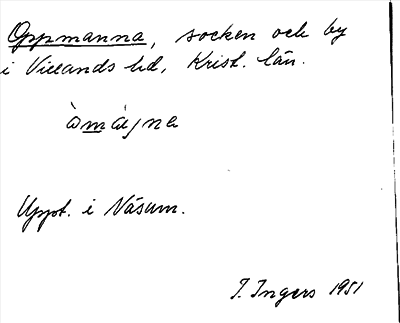 Oppmanna, socken och by
i Villands hd, Krist. län.
Uppt. i Näsum.
I. Ingers 1951